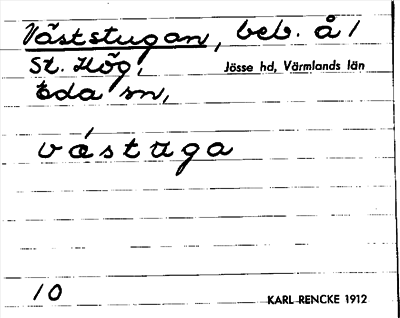 Väststugan, beb. å 1
St. Hög, Jösse hd, Värmlands län
Eda sn,
västuga
10 KARL RENCKE 1912